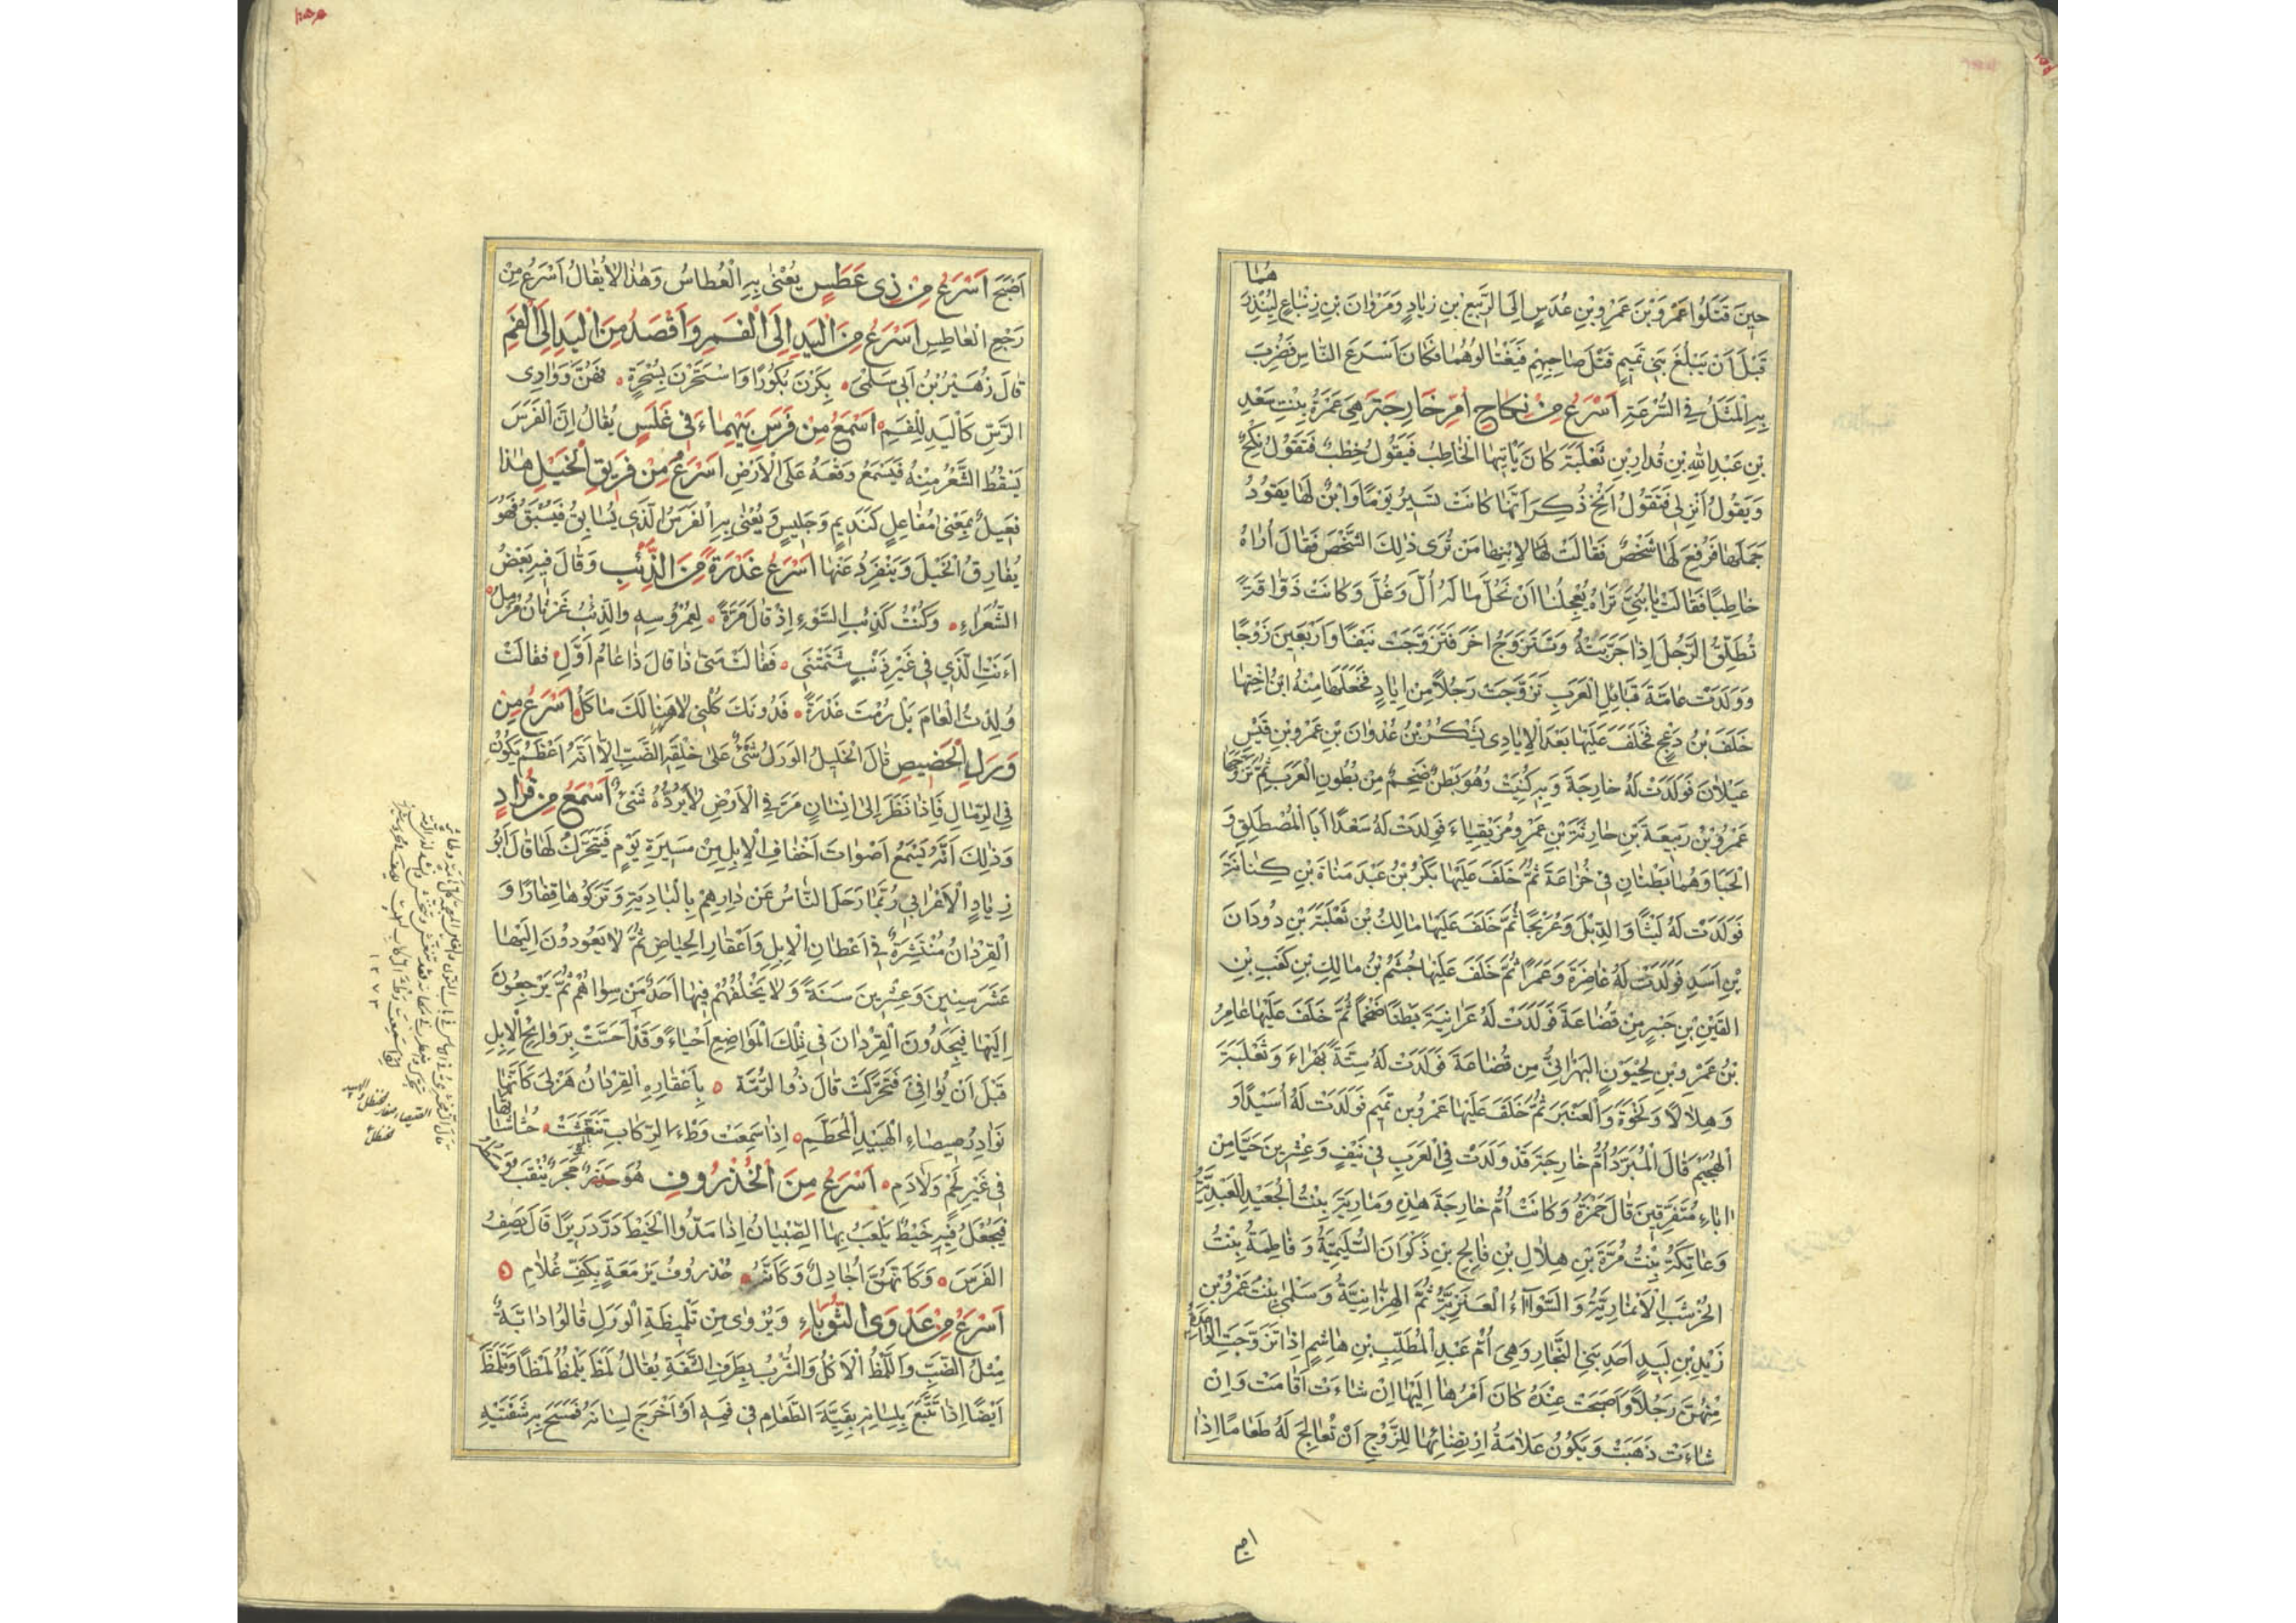 هما
حينَ قَتَلُوا عَمْرَو بْنَ عَمْرِو بْنِ عُدَسٍ اِلَى الرَّبيعِ بْنِ زيادٍ وَمَرْوانَ بْنِ زِنْباعٍ لِيُنْذِرَ
قَبْلَ اَنْ يَبْلُغَ بَني تَميمٍ قَتْلُ صاحِبِهِمْ فَيَغْتالُوهُمَا فَكَانَ اَسْرَعَ النّاسِ فَضُرِبَ
بِهِ الْمَثَلُ فِي السُّرْعَةِ اَسْرَعُ مِنْ نِكاحِ اُمِّ خارِجَةَ هِيَ عَمْرَةُ بِنْتُ سَعْدِ
بْنِ عَبْدِ اللهِ بْنِ قُدارِ بْنِ ثَعْلَبَةَ كانَ يَأْتيهَا الْخاطِبُ فَيَقُولُ خِطْبٌ فَتَقُولُ نِكْحٌ
وَيَقُولُ اَنْزِلي فَتَقُولُ اَنِخْ ذُكِرَ اَنَّها كانَتْ تَسيرُ يَوْمًا وَابْنٌ لَها يَقُودُ
جَمَلَها فَرُفِعَ لَها شَخْصٌ فَقالَتْ لِابْنِها مَنْ تُرى ذٰلِكَ الشَّخْصَ فَقالَ اُراهُ
خاطِبًا فَقالَتْ يا بُنَيَّ تَراهُ يُعْجِلُنا اَنْ نَحُلَّ ما لَهُ اُلَّ وَغُلَّ وَكانَتْ ذَوّاقَةً
تُطَلِّقُ الرَّجُلَ اِذا جَرَّبَتْهُ وَتَتَزَوَّجُ اخَرَ فَتَزَوَّجَتْ نَيِّفًا وَاَرْبَعينَ زَوْجًا
وَوَلَدَتْ عامَّةَ قَبائِلِ الْعَرَبِ تَزَوَّجَتْ رَجُلاً مِنْ اِيادٍ فَخَلَعَها مِنْهُ ابْنُ اُخْتِها
خَلَفُ بْنُ دَعْجٍ فَخَلَفَ عَلَيْها بَعْدَ الْاِيادِي يَشْكُرُ بْنُ عُدْوانَ بْنِ عَمْرِو بْنِ قَيْسِ
عَيْلانَ فَوَلَدَتْ لَهُ خارِجَةَ وَبِهِ كُنِيَتْ وَهُوَ بَطْنٌ ضَخْمٌ مِنْ بُطُونِ الْعَرَبِ ثُمَّ تَزَوَّجَها
عَمْرُو بْنُ رَبيعَةَ بْنِ حارِثَةَ بْنِ عَمْرٍو مُزَيْقِياءَ فَوَلَدَتْ لَهُ سَعْدًا اَبَا الْمُصْطَلِقِ وَ
الْحَيا وَهُما بَطْنانِ في خُزاعَةَ ثُمَّ خَلَفَ عَلَيْها بَكْرُ بْنُ عَبْدِ مَناةَ بْنِ كِنانَةَ
فَوَلَدَتْ لَهُ لَيْثًا وَالدِّئِلَ وَعُرَيْجًا ثُمَّ خَلَفَ عَلَيْها مالِكُ بْنُ ثَعْلَبَةَ بْنِ دُودانَ
بْنِ اَسَدٍ فَوَلَدَتْ لَهُ غاضِرَةَ وَعَمْرًا ثُمَّ خَلَفَ عَلَيْها جُشَمُ بْنُ مالِكِ بْنِ كَعْبِ بْنِ
القَيْنِ بْنِ جَسْرٍ مِنْ قُضاعَةَ فَوَلَدَتْ لَهُ عَرانِيَةَ بَطْنًا ضَخْمًا ثُمَّ خَلَفَ عَلَيْها عامِرُ
بْنُ عَمْرِو بْنِ لِحْيَوْنٍ الْبَهْرانِيُّ مِنْ قُضاعَةَ فَوَلَدَتْ لَهُ سِتَّةً بَهْراءَ وَثَعْلَبَةَ
وَهِلالًا وَنَخْوَةَ وَالْعَنْبَرَ ثُمَّ خَلَفَ عَلَيْها عَمْرُو بْنُ تَميمٍ فَوَلَدَتْ لَهُ اُسَيِّدًا وَ
الْهُجَيْمَ قالَ الْمُبَرِّدُ اُمُّ خارِجَةَ قَدْ وَلَدَتْ فِي الْعَرَبِ في نَيِّفٍ وَعِشْرينَ حَيًّا مِنْ
اباءٍ مُتَفَرِّقينَ قالَ حَمْزَةُ وَكانَتْ اُمُّ خارِجَةَ هٰذِهِ وَمارِيَةُ بِنْتُ الْجُعَيْدِ الْعَبْدِيَّةُ
وَعاتِكَةُ بِنْتُ مُرَّةَ بْنِ هِلالِ بْنِ فالِجِ بْنِ ذَكْوانَ السُّلَيْمِيَّةُ وَفاطِمَةُ بِنْتُ
الخُرْشُبِ الْاَنْمارِيَّةُ وَالسَّوْاءُ الْعَنَزِيَّةُ ثُمَّ الْهِزّانِيَّةُ وَسَلْمى بِنْتُ عَمْرِو بْنِ
زَيْدِ بْنِ لَبيدٍ اَحَدِ بَنِي النَّجّارِ وَهِيَ اُمُّ عَبْدِ الْمُطَّلِبِ بْنِ هاشِمٍ اِذا تَزَوَّجَتِ الْواحِدَةُ
مِنْهُنَّ رَجُلاً وَاَصْبَحَتْ عِنْدَهُ كانَ اَمْرُها اِلَيْها اِنْ شاءَتْ اَقامَتْ وَاِنْ
شاءَتْ ذَهَبَتْ وَيَكُونُ عَلامَةُ ارْتِضائِها لِلزَّوْجِ اَنْ تُعالِجَ لَهُ طَعامًا اِذا
اصبح
اَصْبَحَ اَسْرَعُ مِنْ ذي عَطَسٍ يُعْنى بِهِ الْعُطاسُ وَهٰذا لا يُقالُ اَسْرَعُ مِنْ
رَجْعِ الْعاطِسِ اَسْرَعُ مِنَ الْيَدِ اِلَى الْفَمِ وَاَقْصَدُ مِنَ الْيَدِ اِلَى الْفَمِ
قالَ زُهَيْرُ بْنُ اَبي سَلْمى بَكَرْنَ بُكُورًا وَاسْتَحَرْنَ بِسُحْرَةٍ فَهُنَّ وَوادِي
الرَّسِّ كَالْيَدِ لِلْفَمِ اَسْمَعُ مِنْ فَرَسٍ بَيْهَماءَ في غَلَسٍ يُقالُ اِنَّ الْفَرَسَ
يَسْقُطُ الشَّعْرُ مِنْهُ فَيَسْمَعُ وَقْعَهُ عَلَى الْاَرْضِ اَسْرَعُ مِنْ فَريقِ الْخَيْلِ هٰذا
فَعيلٌ بِمَعْنى مُفاعِلٍ كَنَديمٍ وَجَليسٍ وَيُعْنى بِهِ الْفَرَسُ الَّذي يُسابِقُ فَيَسْبِقُ فَهُوَ
يُفارِقُ الْخَيْلَ وَيَنْفَرِدُ عَنْها اَسْرَعُ غَدْرَةً مِنَ الذِّئْبِ وَقالَ فيهِ بَعْضُ
الشُّعَراءِ وَكُنْتَ كَذِئْبِ السَّوْءِ اِذْ قالَ مَرَّةً لِعُمْرُوسِهِ والذِّئْبُ غَرْثانُ مُرْمِلُ
اَءَنْتِ الَّذي في غَيْرِ ذَنْبٍ شَتَمْتَني فَقالَتْ مَتى ذا قالَ ذا عامُ اَوَّلِ فقالَتْ
وُلِدْتُ الْعامَ بَلْ رُمْتَ غَدْرَةً فَدُونَكَ كُلْني لا هَنا لَكَ مَأْكَلُ اَسْرَعُ مِنْ
وَرَلِ الْحَضيضِ قالَ الْخَليلُ الْوَرَلُ شَيْءٌ عَلى خِلْقَةِ الضَّبِّ اِلّا اَنَّهُ اَعْظَمُ يَكُونُ
فِي الرِّمالِ فَاِذا نَظَرَ اِلى اِنْسانٍ مَرَّ فِي الْاَرْضِ لا يَرُدُّهُ شَيْءٌ اَسْمَعُ مِنْ قُرادٍ
وَذٰلِكَ اَنَّهُ يَسْمَعُ اَصْواتَ اَخْفافِ الْاِبِلِ مِنْ مَسيرَةِ يَوْمٍ فَيَتَحَرَّكُ لَها قالَ اَبُو
زِيادٍ الْاَعْرابي رُبَّما رَحَلَ النّاسُ عَنْ دارِهِمْ بِالْبادِيَةِ وَتَرَكُوها قِفارًا وَ
الْقِرْدانُ مُنْتَشِرَةٌ في اَعْطانِ الْاِبِلِ وَاَعْقارِ الْحِياضِ ثُمَّ لا يَعُودُونَ اِلَيْها
عَشْرَ سِنينَ وَعِشْرينَ سَنَةً وَلا يَخْلُفُهُمْ فيها اَحَدٌ مَنْ سِواهُمْ ثُمَّ يَرْجِعُونَ
اِلَيْها فَيَجِدُونَ الْقِرْدانَ في تِلْكَ الْمَواضِعِ اَحْياءً وَقَدْ اَحَسَّتْ بِرَوائِحِ الْاِبِلِ
قَبْلَ اَنْ يُوافِيَ فَتَحَرَّكَتْ قالَ ذُو الرُّمَّةِ بِاَعْقارِهِ الْقِرْدانُ هَزْلى كَاَنَّها
نَوادِرُ صيصاءِ الْهَبيدِ الْمُحَطَّمِ اِذا سَمِعَتْ وَطْءَ الرِّكابِ تَنَغَّشَتْ حُشاشاتُها
في غَيْرِ لَحْمٍ وَلا دَمِ اَسْرَعُ مِنَ الْخُذْرُوفِ هُوَ حَجَرٌ يُثْقَبُ
فَيُجْعَلُ فيهِ خَيْطٌ يَلْعَبُ بِها الصِّبْيانُ اِذا مَدُّوا الْخَيْطَ دَرَّ دَريرًا قالَ يَصِفُ
الفَرَسَ وَكَاَنَّهُنَّ اَجادِلٌ وَكَاَنَّهُ خُذْرُوفُ يَرْمَعَةٍ بِكَفِّ غُلامِ
اَسْرَعُ مِنْ عَدْوَى الثُّوَباءِ وَيُرْوى مِنْ تَلْميظَةِ الْوَرَلِ قالُوا دابَّةٌ
مِثْلُ الضَّبِّ وَاللَّمْظُ الْاَكْلُ وَالشُّرْبُ بِطَرَفِ الشَّفَةِ يُقالُ لَمَظَ يَلْمُظُ لَمْظًا وَتَلَمَّظَ
اَيْضًا اِذا تَتَبَّعَ بِلِسانِهِ بَقِيَّةَ الطَّعامِ في فَمِهِ اَوْ اَخْرَجَ لِسانَهُ فَمَسَحَ بِهِ شَفَتَيْهِ